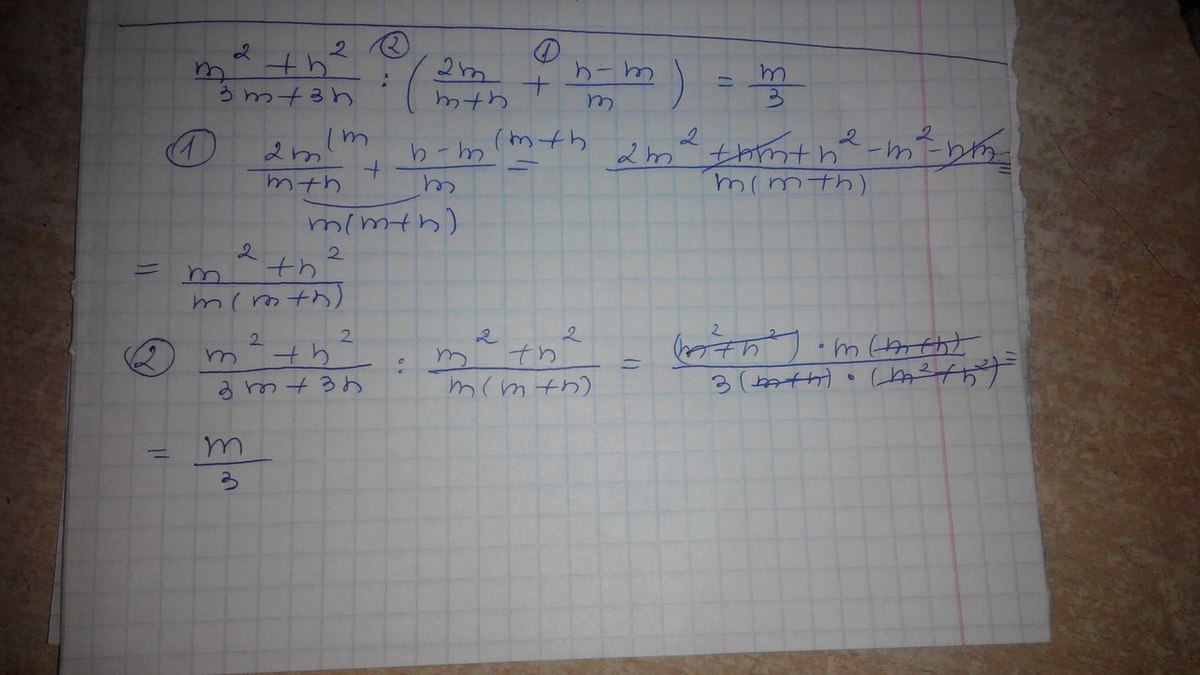 ② ①
(m² + n²)/(3m + 3n) : (2m/(m + n) + (n - m)/m) = m/3
① 2m(m/(m + n) + (n - m(m + n)/m = (2m² + nm + n² - m² - nm)/(m(m + n)) =
m(m + n)
= (m² + n²)/(m(m + n))
② (m² + n²)/(3m + 3n) : (m² + n²)/(m(m + n)) = ((m² + n²) · m(m + n))/(3(m + n) · (m² + n²)) =
= m/3